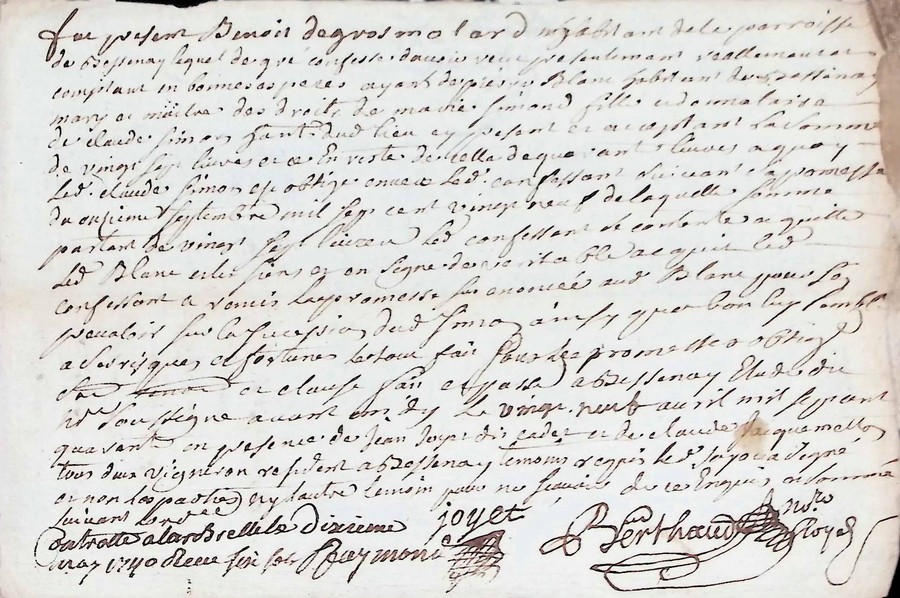 fut present Benoit degrosmolard habitant de la parroisse
de Bessenay lequel de gré confesse d'avoir reçu presentement reallement et
comptant en bonnes especes ayant de pierre Blanc habitant de Bessenay
mary et maitre des droits de marie simond fille et donnataire
de claude simon dud lieu cy present et acceptant la somme
de vingt sept livres et ce En reste de celle de quarante livres a quoy
led. claude simon est obligé envers led. confessant suivant sa promesse
du onzieme septembre mil sept cent vingt neuf de laquelle somme
partant de vingt sept livres led confessant et contente a quitté
led Blanc et les siens et en signe de veritable acquit led
confessant a remis la promesse sus enoncée aud Blanc pour se
prevaloir sur la succession dud simon ainsy que bon luy semblera
a ses risques et fortunes le tout fait promesse oblig
et clause fait et passé a Bessenay Etude du
nre soussigné avant midy le vingt neuf avril mil sept cent
quarente en presence de Jean Joyet dit cadet et de claude Jacquemetton
tous deux vigneron resident a Bessenay temoins requis led Sr Joyet a signé
et non les parties ny l'autre temoin pour ne sçavoir de ce Enquis et sommé
suivant lord
Controllé a larbrelle le dixieme
may 1740 Receu six sols Raymond
joyet
Berthaud Nore
Royal